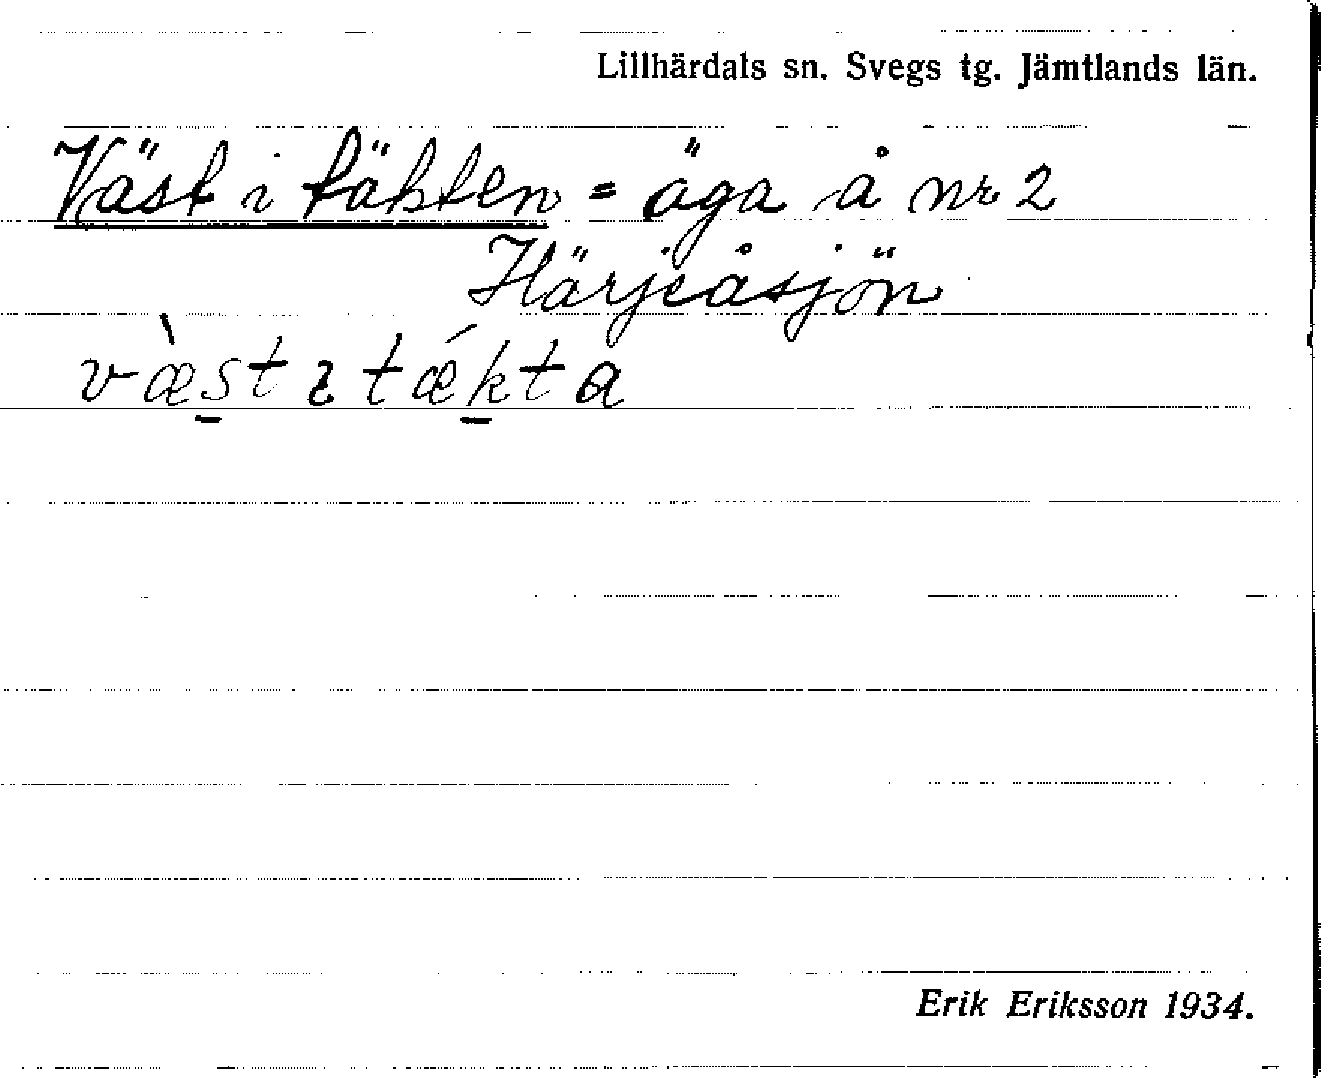 Lillhärdals sn. Svegs tg. Jämtlands län.
Väst i täkten = äga å nr 2
Härjeåsjön
væ̀st ı tǽkta
Erik Eriksson 1934.